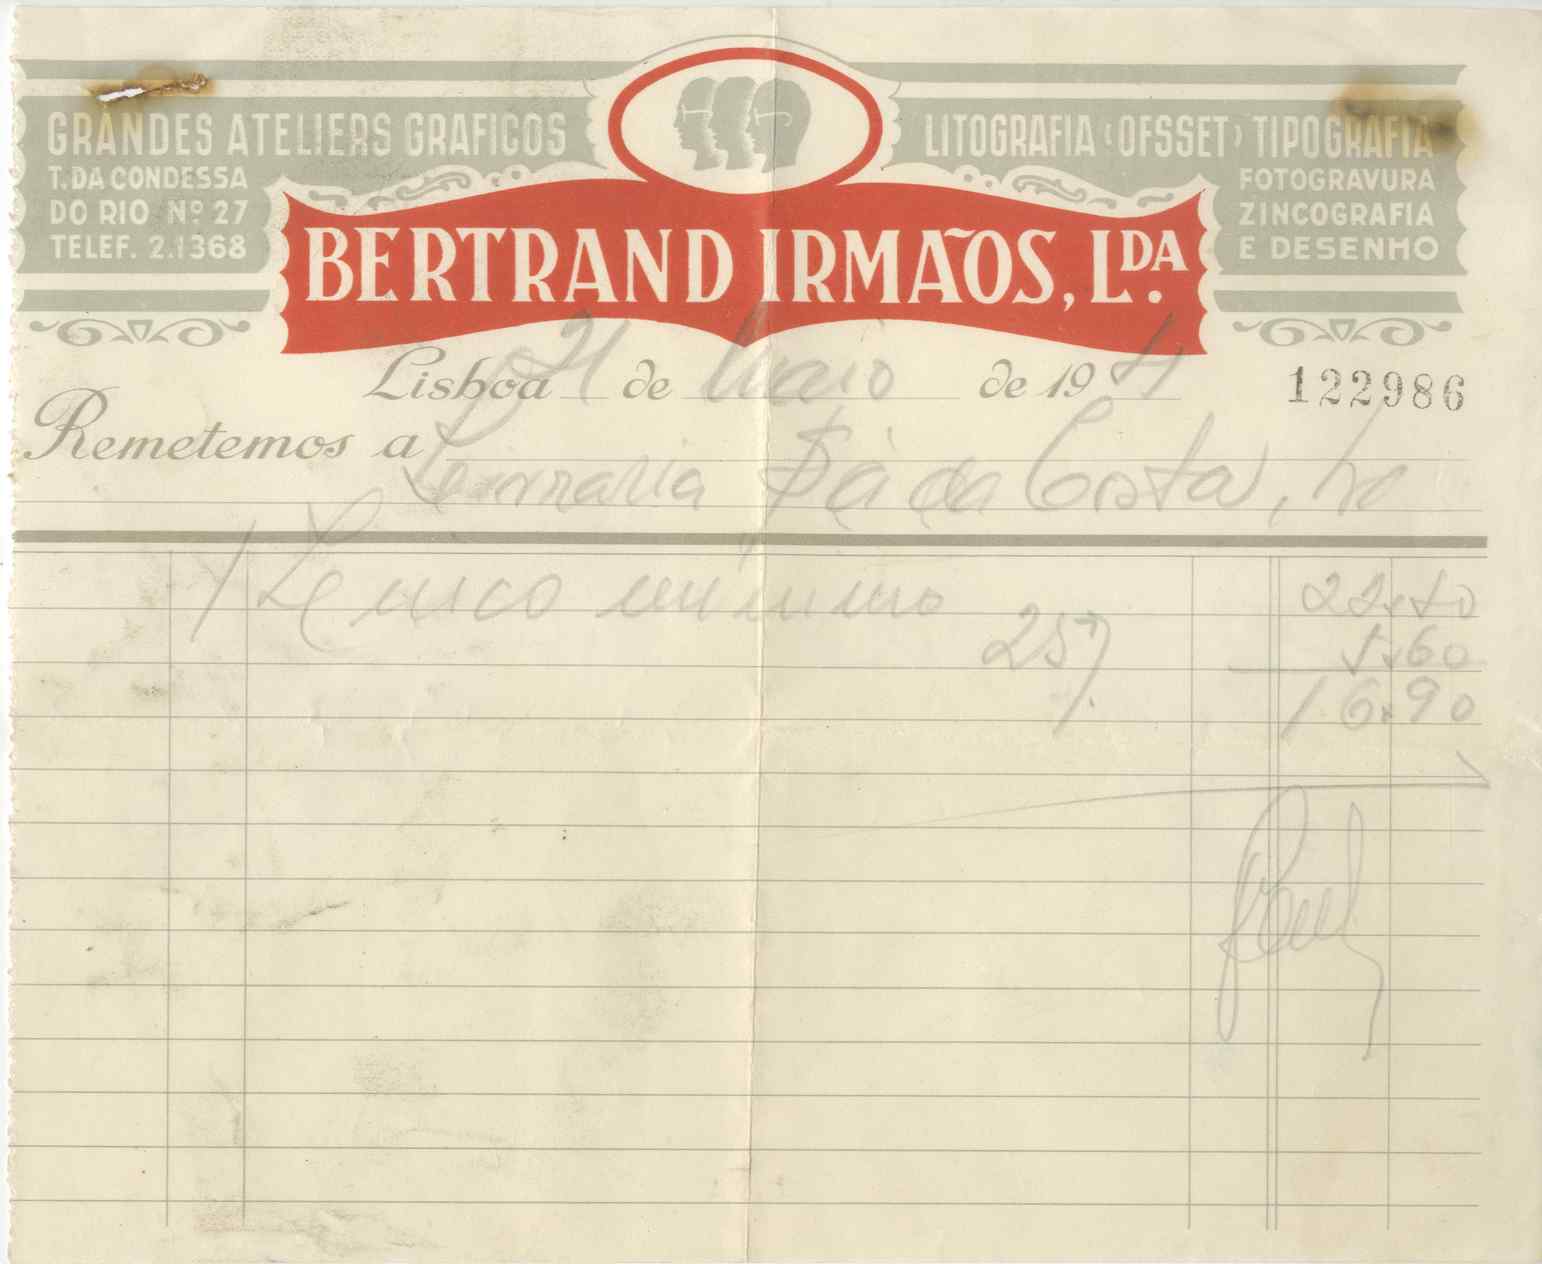 GRANDES ATELIERS GRAFICOS
T. DA CONDESSA
DO RIO Nº 27
TELEF. 2.1368
LITOGRAFIA (OFSSET) TIPOGRAFIA
FOTOGRAVURA
ZINCOGRAFIA
E DESENHO
BERTRAND IRMÃOS, LDA.
Lisboa 21 de Maio de 19
122986
Remetemos a
Sá da Costa,
1 Zinco minimo
25%
5$60
16$90